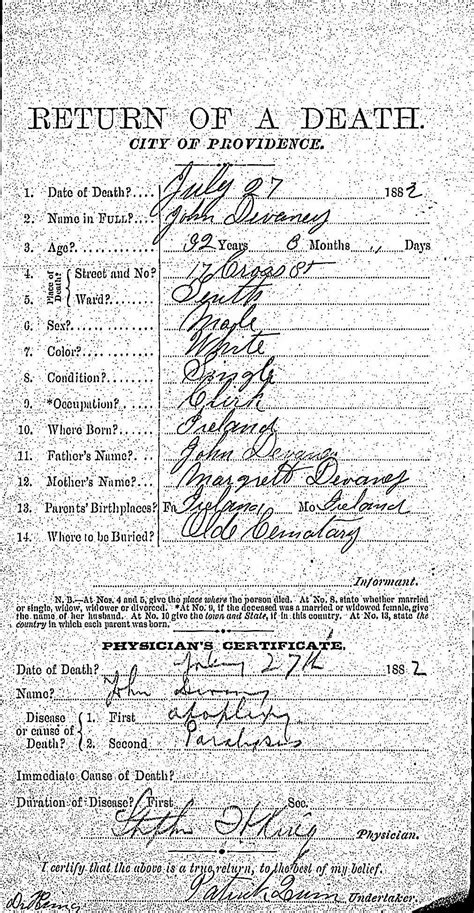 RETURN OF A DEATH.
CITY OF PROVIDENCE.
1. Date of Death?.... July 27 1882
2. Name in FULL?.... John Devaney
3. Age?.... 32 Years 3 Months " Days
Place of Death?
4. Street and No? 17 Cross St
5. Ward?.... Tenth
6. Sex?.... Male
7. Color?.... White
8. Condition?.... Single
9. *Occupation?.... Clerk
10. Where Born?.... Ireland
11. Father's Name?.... John Devaney
12. Mother's Name?.... Margrett Devaney
13. Parents' Birthplaces? Fa Ireland Mo Ireland
14. Where to be Buried? Olde Cematary
Informant.
N. B.—At Nos. 4 and 5, give the place where the person died. At No. 8, state whether married
or single, widow, widower or divorced. *At No. 9, if the deceased was a married or widowed female, give
the name of her husband. At No. 10 give the town and State, if in this country. At No. 13, state the
country in which each parent was born.
PHYSICIAN'S CERTIFICATE.
Date of Death? July 27th 1882
Name? John
Disease or cause of Death?
1. First apoplexy
2. Second Paralysis
Immediate Cause of Death?
Duration of Disease? First Sec.
King Physician.
I certify that the above is a true return, to the best of my belief.
Patrick Quinn Undertaker.